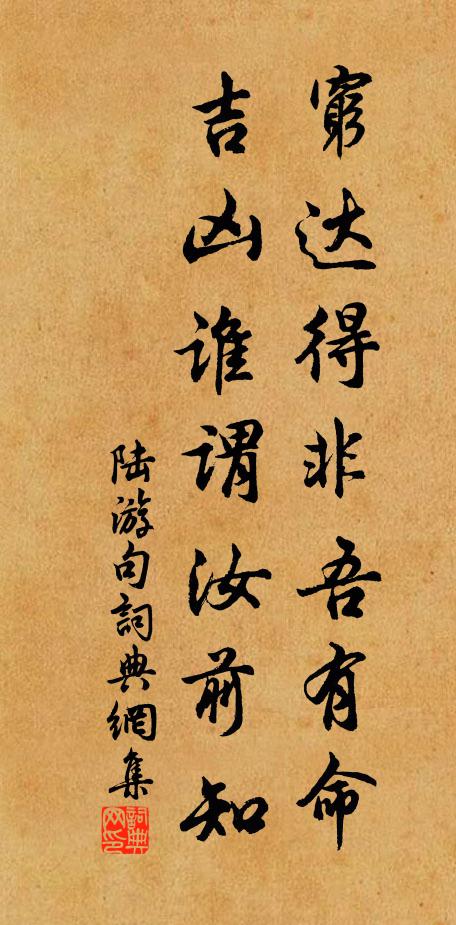 窮达得非吾有命
吉凶谁谓汝前知
陆游句詞典網集
詞典网印